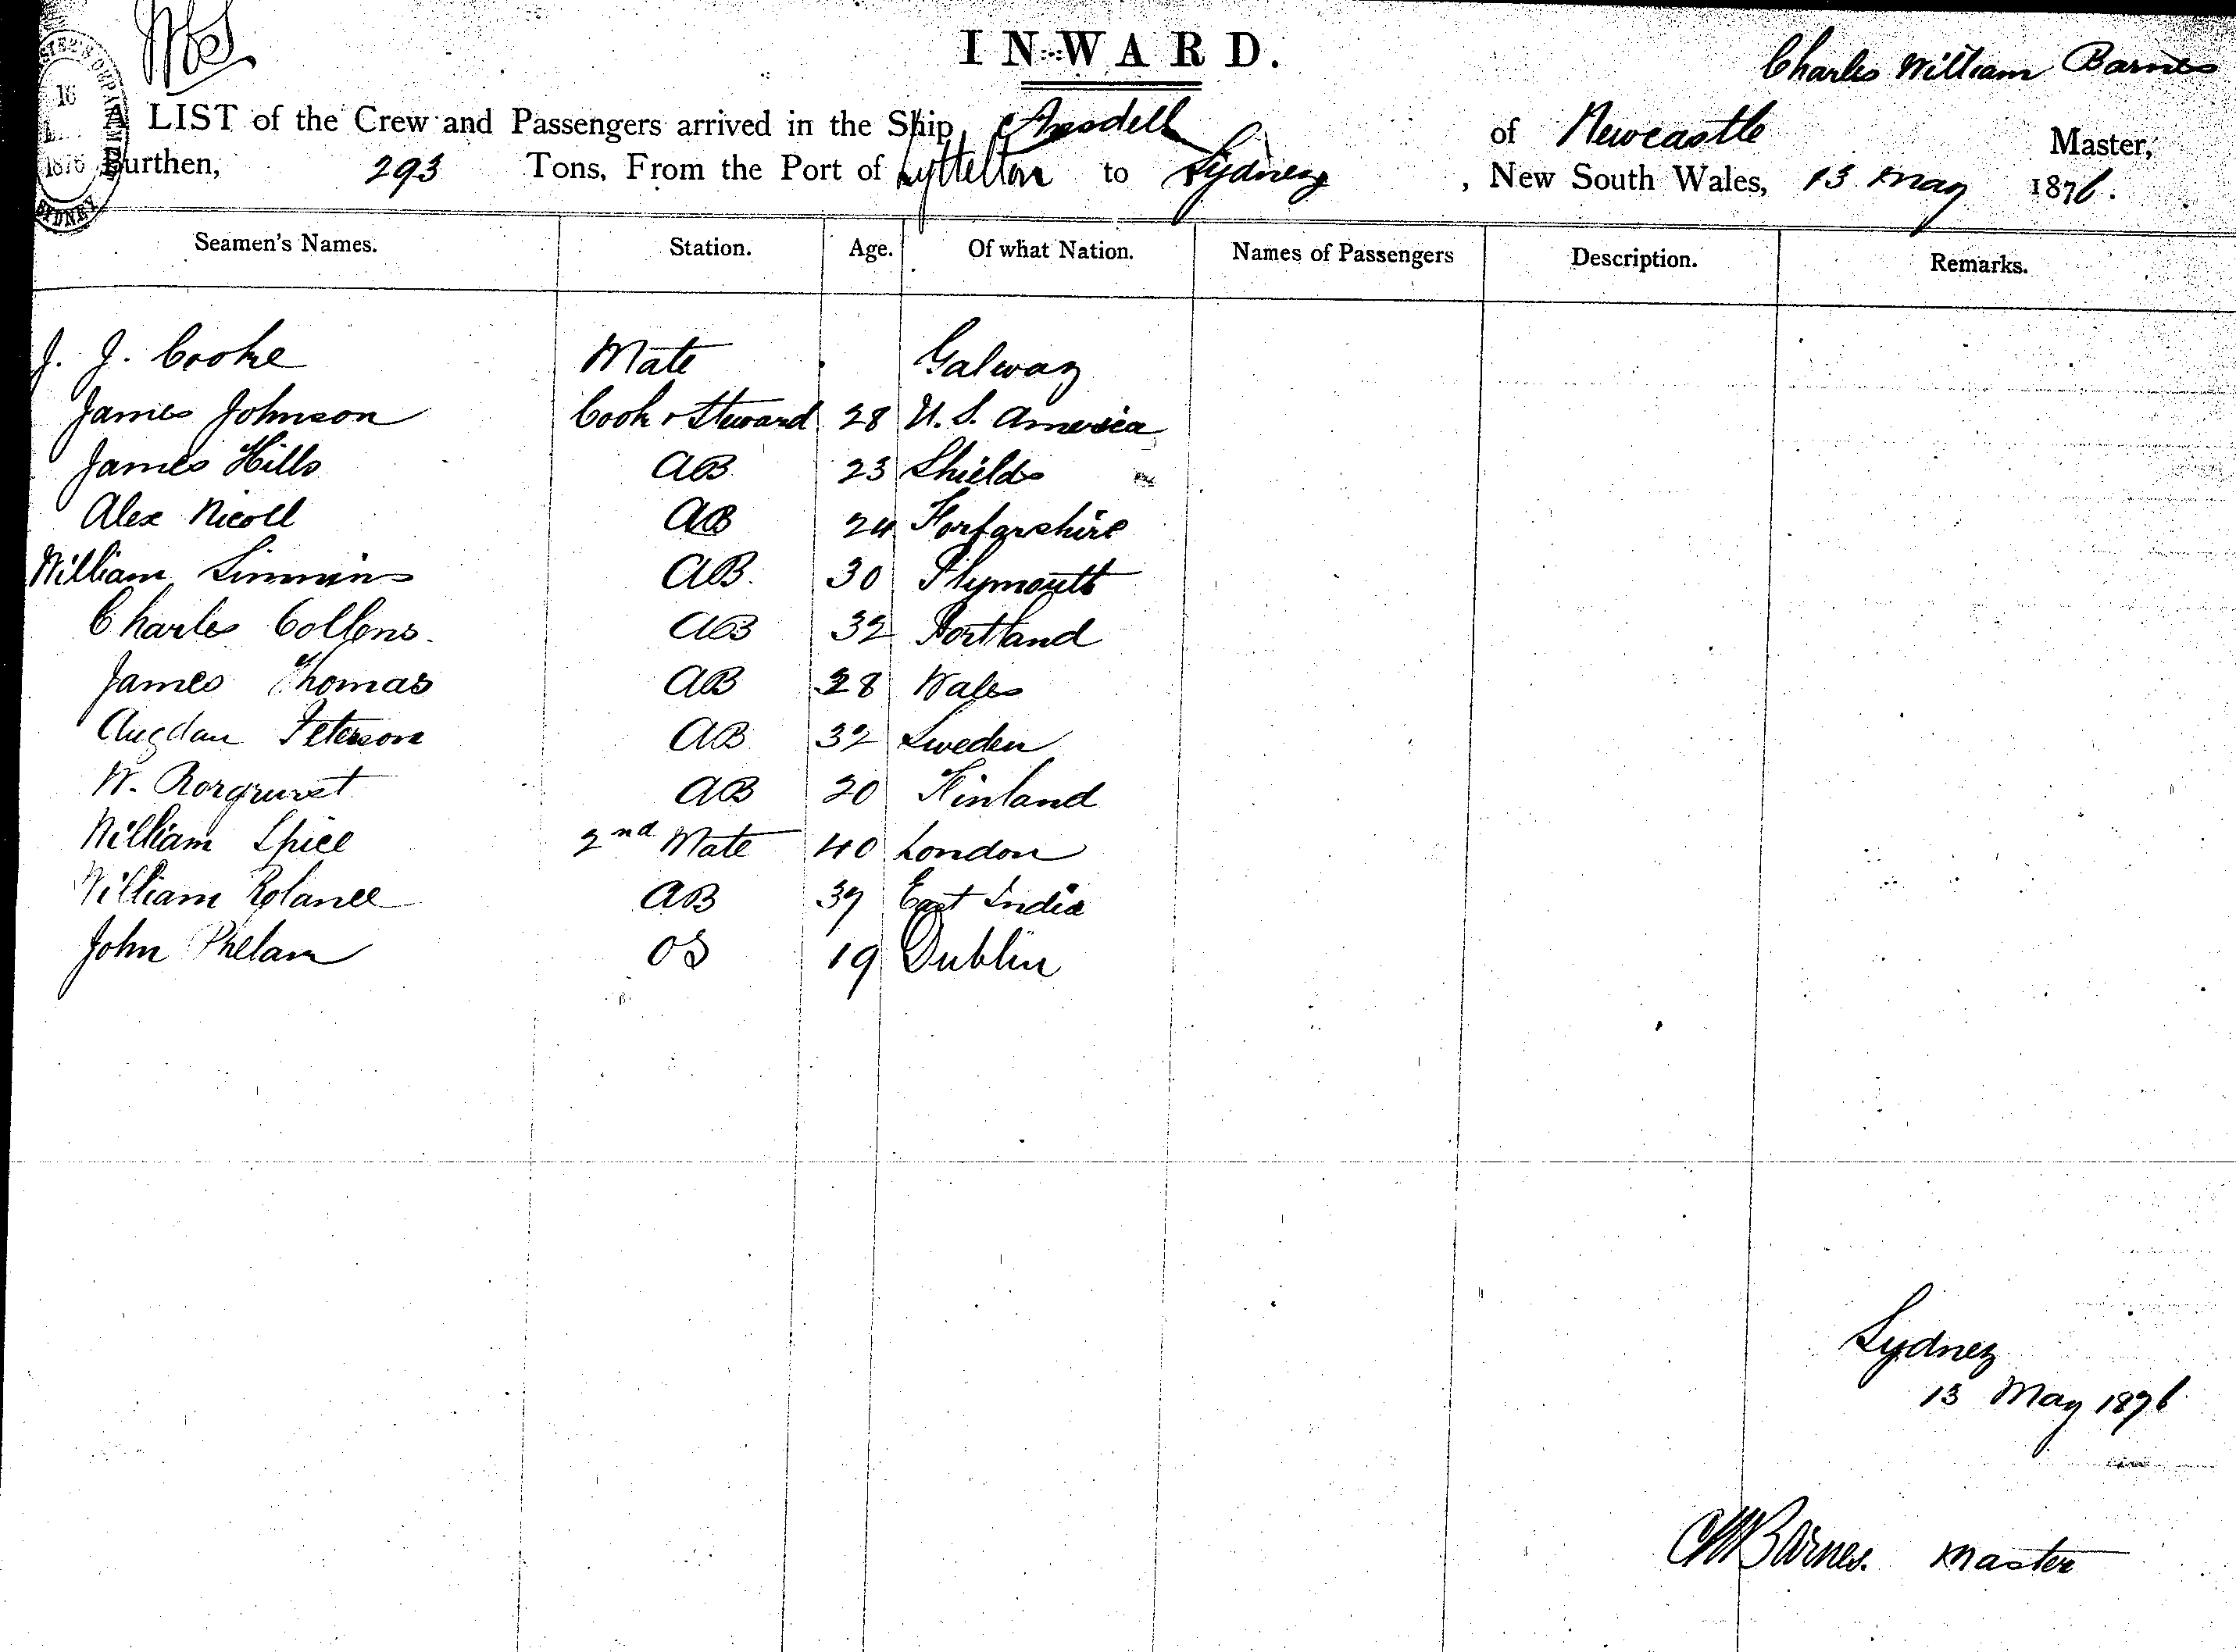 INWARD.
Charles William Barnes
A LIST of the Crew and Passengers arrived in the Ship Ansdell of Newcastle Master,
Burthen, 293 Tons, From the Port of Lyttelton to Sydney, New South Wales, 13 May 1876.
16
1876
SYDNEY
Seamen's Names. Station. Age. Of what Nation. Names of Passengers Description. Remarks.
J. J. Cooke Mate Galway
James Johnson Cook & Steward 28 U.S. America
James Hills AB 23 Shields
Alex Nicoll AB 24 Forfarshire
William Simmins AB 30 Plymouth
Charles Collens. AB 32 Portland
James Thomas AB 28 Wales
Peterson AB 32 Sweden
W. AB 20 Finland
William Spice 2nd Mate 40 London
William AB 39 East India
John Phelan OS 19 Dublin
Sydney
13 May 1876
CWBarnes. Master